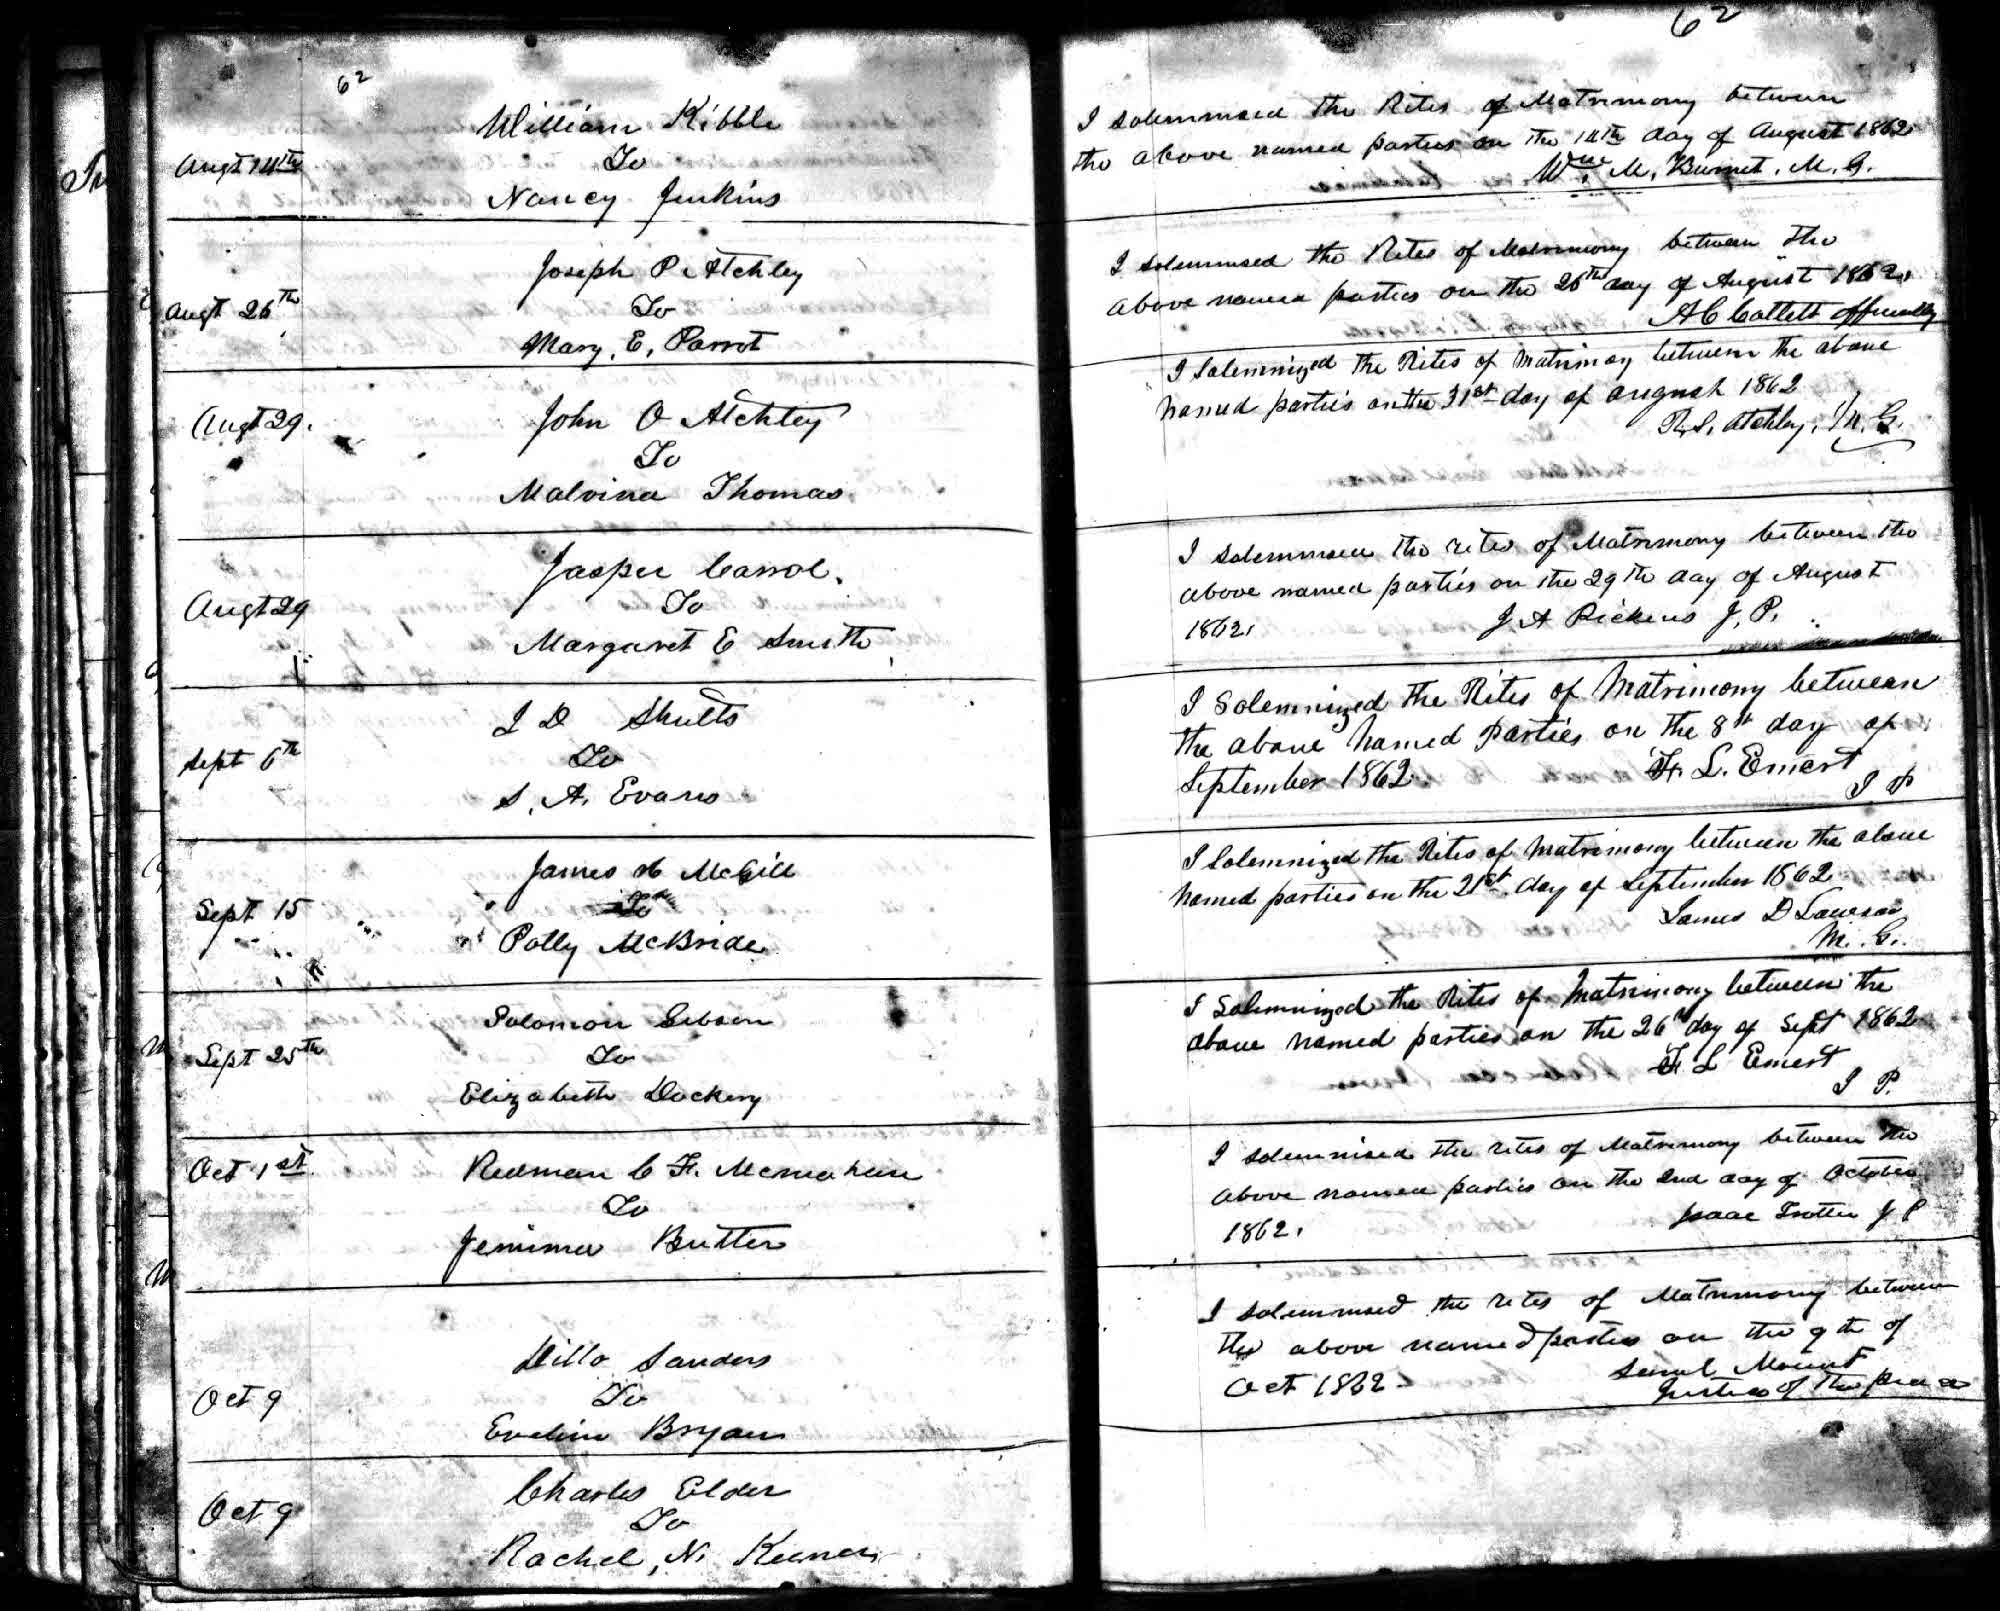 62
William Kibble
Augt 14th
To
Nancy Jenkins
Joseph P. Atchley
Augt 26th
To
Mary, E, Parrot
Augt 29.
John O Atchley
To
Malvina Thomas
Jasper Carrol.
Augt 29
To
Margaret E Smith
J D Shults
Sept 6th
To
S, A, Evans
James H McGill
Sept 15
To
Polly McBride
Solomon Gibson
Sept 25th
To
Elizabeth Dockery
Oct 1st
Redman C F. Mcmahan
To
Jemima Butler
Sanders
Oct 9
To
Eveline Bryan
Charles Elder
Oct 9
To
Rachel, N. Keener
62
I solemnised the Rites of Matrimony between
the above named parties on the 14th day of August 1862
Wm. M, Burnet, M. G.
I solemnised the Rites of Matrimony between the
above named parties on the 26th day of August 1862,
A C Catlett officially
I Solemnized the Rites of Matrimoy between the above
named parties on the 31st day of august 1862
R. S. Atchley, M. G.
I solemnised the rites of Matrimony between the
above named parties on the 29th day of August
1862, J A Pickens J, P.
I Solemnized the Rites of Matrimony between
the above Named Parties on the 8th day of
September 1862. F. L. Emert
J P
I Solemnized the Rites of Matrimony between the above
Named parties on the 21st day of September 1862
James D Lawson
M. G.
I Solemnized the Rites of Matrimony between the
above named parties on the 26th day of Sept 1862
F. L Emert
J P.
I solemnised the rites of Matrimony between the
above named parties on the 2nd day of October
1862, Isaac Trotter J P
I solemnised the rites of Matrimony between
the above named parties on the 9th of
Oct 1862 - Saml Mount
Justice of the peace